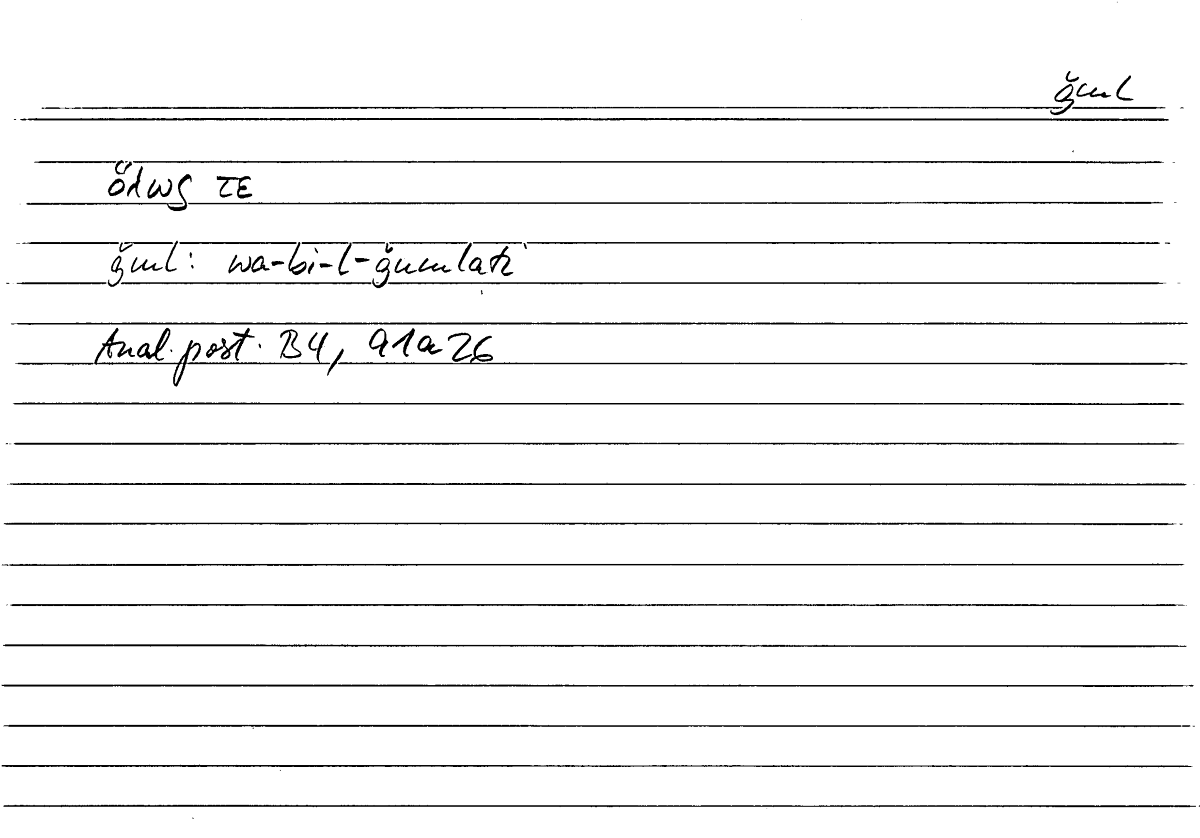 ǧml
ὅλως τε
ǧml: wa-bi-l-ǧumlati
Anal. post. B4, 91a26